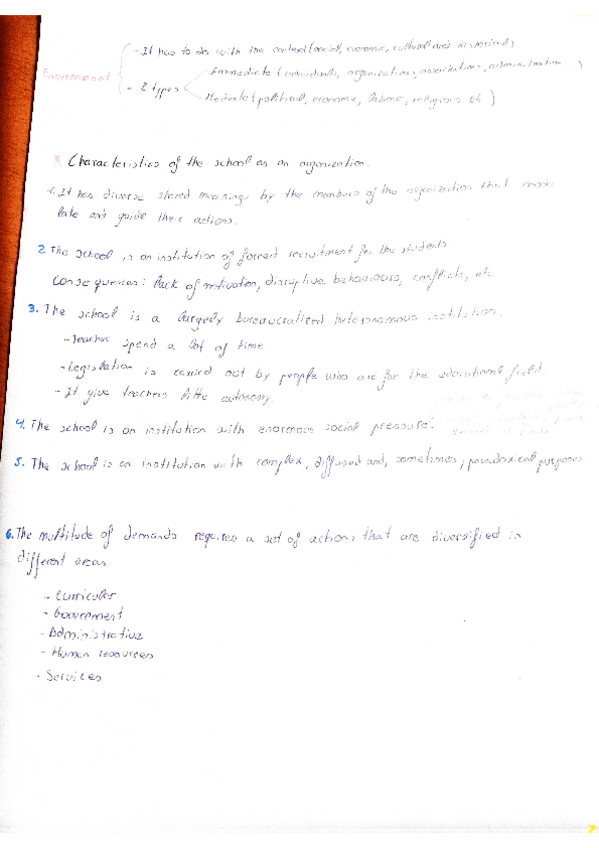 Environment
- It has to do with the context (social, economic, cultural and historical)
- 2 types
Immediate (individuals, organizations, associations, administration)
Mediate (political, economic, labour, religious etc)
Characteristics of the school as an organization.
1. It has diverse shared meanings by the members of the organization that
late and guide their actions.
2. The school is an institution of forced recruitment for the students
Consequences: lack of motivation, disruptive behaviours, conflicts, etc
3. The school is a largely bureaucratized heteronomous institution.
- Teacher spend a lot of time
- Legislation is carried out by people who are far the educational field
- It give teachers little autonomy.
4. The school is an institution with enormous social pressure.
5. The school is an institution with complex, diffused and, sometimes, paradoxical purposes
6. The multitude of demands requires a set of actions that are diversified in
different areas
- Curricular
- Government
- Administrative
- Human resources
- Services